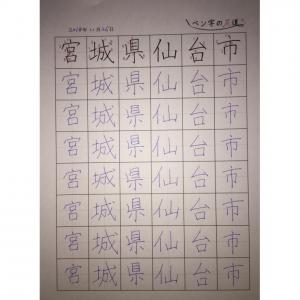 2018年11月26日
ペン字の正道
宮城県仙台市
宮城県仙台市
宮城県仙台市
宮城県仙台市
宮城県仙台市
宮城県仙台市
宮城県仙台市
宮城県仙台市